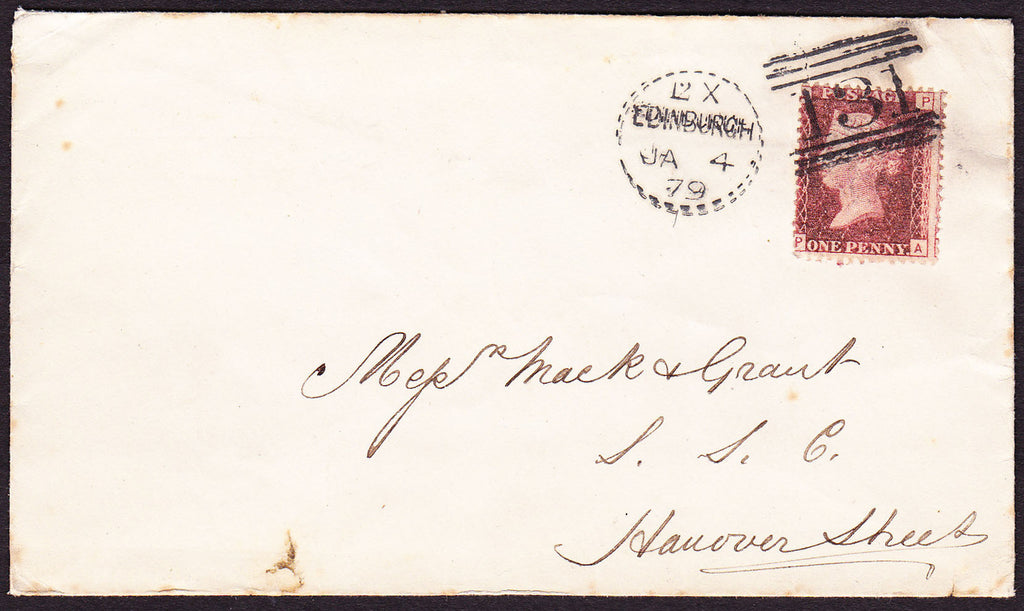 12 X
EDINBURGH
JA 4
79
131
POSTAGE
P
P ONE PENNY. A
Messrs Mack & Grant
S. S. C.
Hanover Street